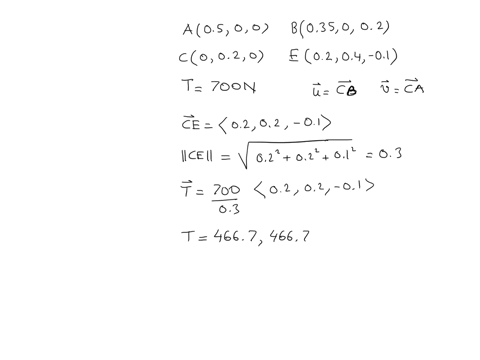 A(0.5, 0, 0) B(0.35, 0, 0.2)
C(0, 0.2, 0) E(0.2, 0.4, -0.1)
T = 700N u⃗ = C⃗B⃗ v⃗ = C⃗A⃗
C⃗E⃗ = ⟨0.2, 0.2, -0.1⟩
||CE|| = √(0.2² + 0.2² + 0.1²) = 0.3
T⃗ = 700/0.3 ⟨0.2, 0.2, -0.1⟩
T = 466.7, 466.7